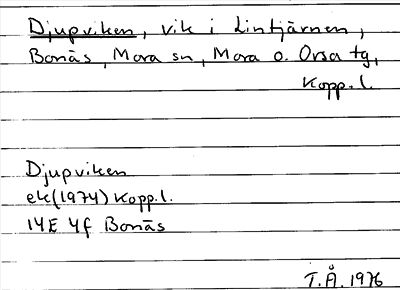 Djupviken, vik i Lintjärnen,
Bonäs, Mora sn, Mora o. Orsa tg,
Kopp. l.
Djupviken
ek (1974) Kopp. l.
14E 4f Bonäs
T.Å. 1976